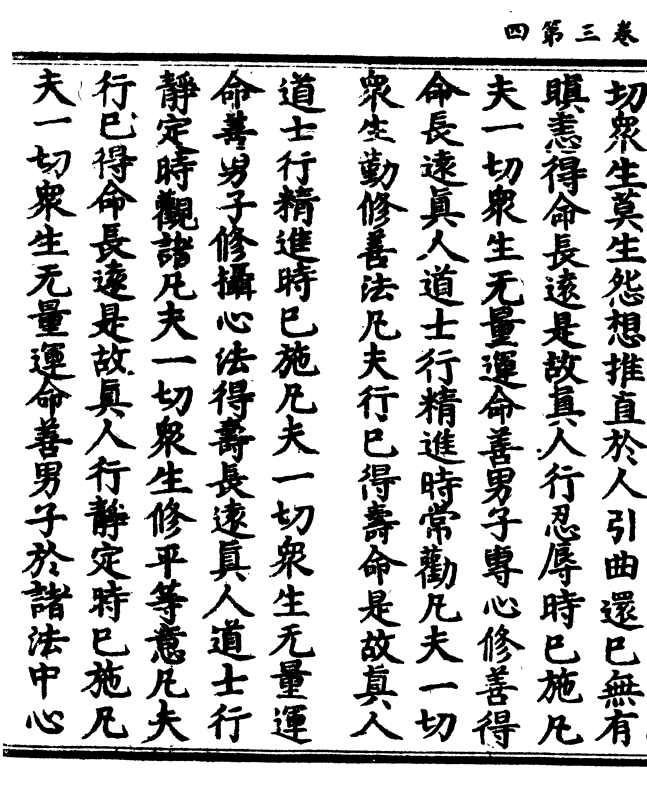 卷三第四
切衆生莫生怨想推直於人引曲還已無有
瞋恚得命長遠是故真人行忍辱時已施凡
夫一切衆生无量運命善男子專心修善得
命長遠真人道士行精進時常勸凡夫一切
衆生勤修善法凡夫行已得壽命是故真人
道士行精進時已施凡夫一切衆生无量運
命善男子修攝心法得壽長遠真人道士行
靜定時觀諸凡夫一切衆生修平等意凡夫
行已得命長遠是故真人行靜定時已施凡
夫一切衆生无量運命善男子於諸法中心